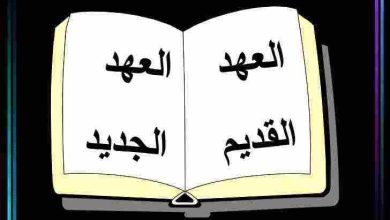 العهد
القديم
العهد
الجديد